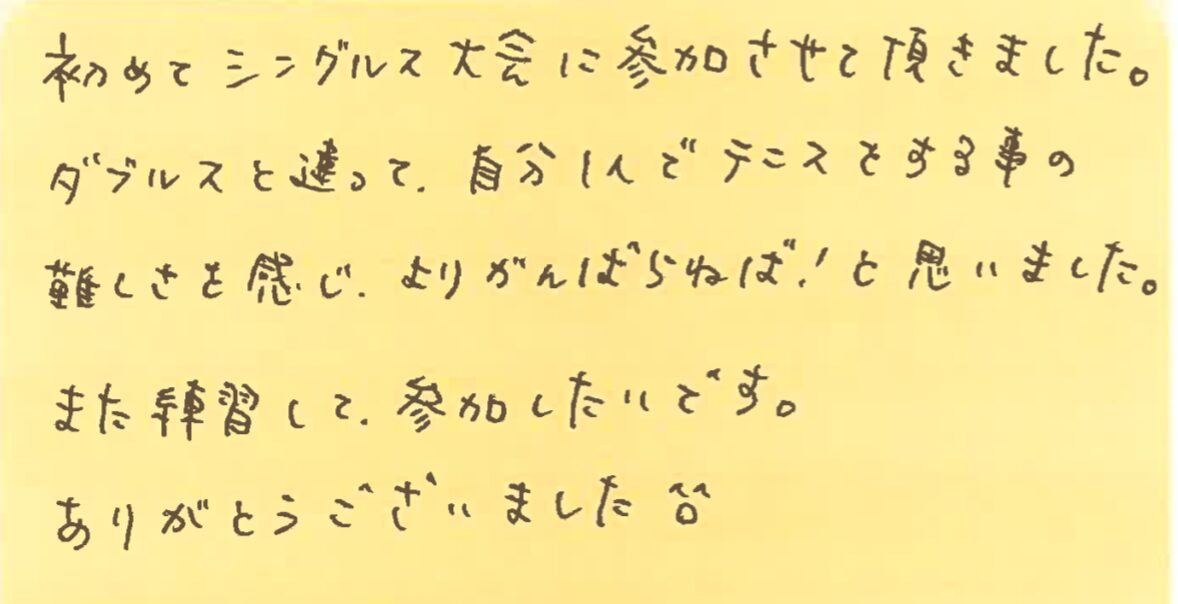 初めてシングルス大会に参加させて頂きました。
ダブルスと違って、自分1人でテニスをする事の
難しさを感じ、よりがんばらねば!と思いました。
また練習して、参加したいです。
ありがとうございました ^o^